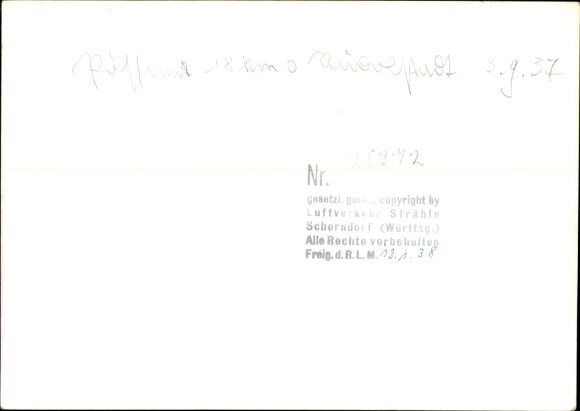 18 km o Rudolstadt 3.9.37
Nr.
gesetzl. gesch. copyright by
Luftverkehr Strähle
Schorndorf (Württbg.)
Alle Rechte vorbehalten
Freig. d. R. L. M. 13.1.38